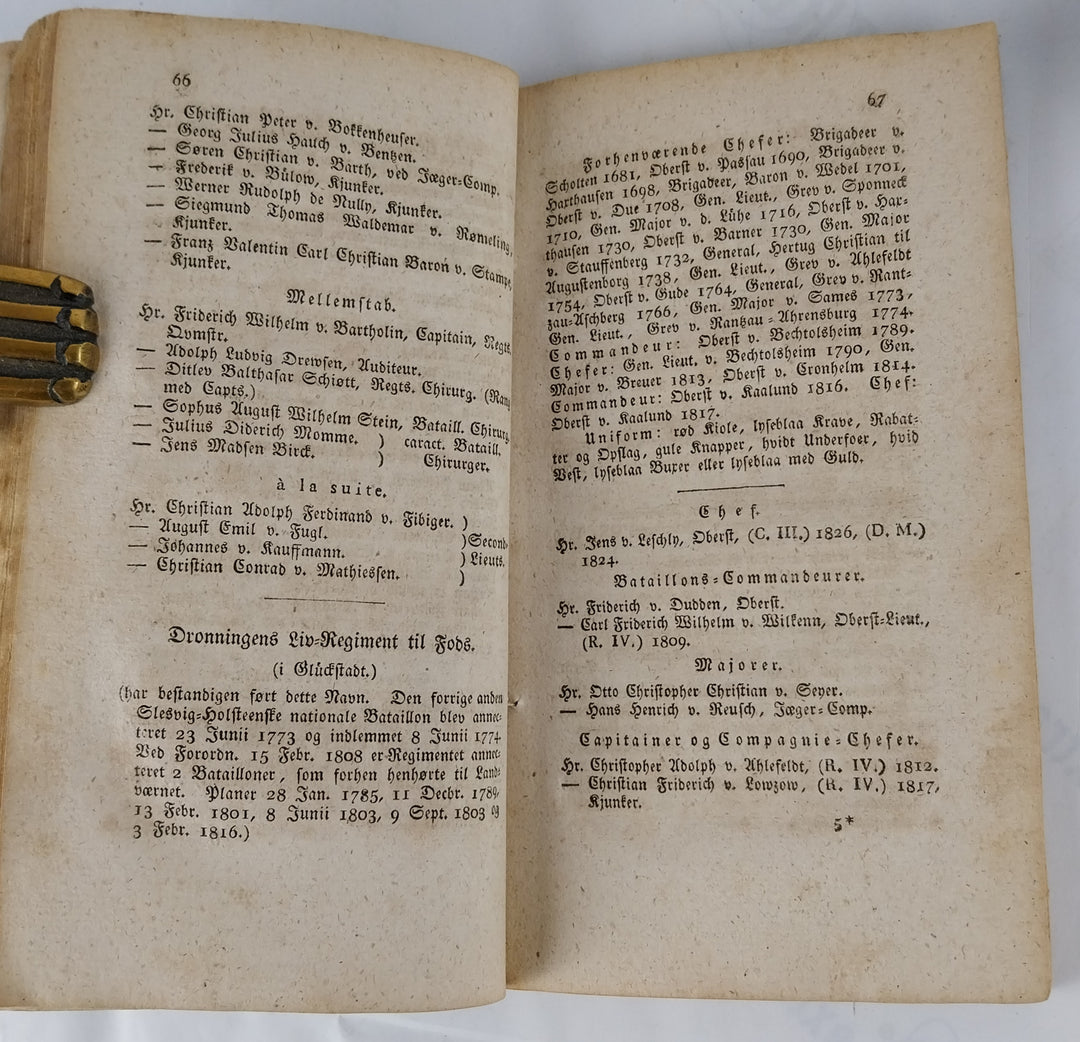 66
Hr. Christian Peter v. Bokkenheuser.
— Georg Julius Hauch v. Bentzen.
— Søren Christian v. Barth, ved Jæger-Comp.
— Frederik v. Bülow, Kjunker.
— Werner Rudolph de Nully, Kjunker.
— Siegmund Thomas Waldemar v. Rømeling,
Kjunker.
— Franz Valentin Carl Christian Baron v. Stampe,
Kjunker.
Mellemstab.
Hr. Friderich Wilhelm v. Bartholin, Capitain, Regts.
Qvmstr.
— Adolph Ludvig Drewsen, Auditeur.
— Ditlev Balthasar Schiøtt, Regts. Chirurg. (Rang
med Capts.)
— Sophus August Wilhelm Stein, Bataill. Chirurg.
— Julius Diderich Momme. ) caract. Bataill.
— Jens Madsen Birck. ) Chirurger.
à la suite.
Hr. Christian Adolph Ferdinand v. Fibiger. )
— August Emil v. Fugl. )Second-
— Johannes v. Kauffmann. ) Lieuts.
— Christian Conrad v. Mathiessen. )
Dronningens Liv-Regiment til Fods.
(i Glückstadt.)
(har bestandigen ført dette Navn. Den forrige anden
Slesvig-Holsteenske nationale Bataillon blev annec-
teret 23 Junii 1773 og indlemmet 8 Junii 1774
Ved Forordn. 15 Febr. 1808 er Regimentet annec-
teret 2 Batailloner, som forhen henhørte til Land-
værnet. Planer 28 Jan. 1785, 11 Decbr. 1789,
13 Febr. 1801, 8 Junii 1803, 9 Sept. 1803 og
3 Febr. 1816.)
67
Forhenværende Chefer: Brigadeer v.
Scholten 1681, Oberst v. Passau 1690, Brigadeer v.
Harthausen 1698, Brigadeer, Baron v. Wedel 1701,
Oberst v. Due 1708, Gen. Lieut., Grev v. Sponneck
1710, Gen. Major v. d. Lühe 1716, Oberst v. Har-
thausen 1730, Oberst v. Barner 1730, Gen. Major
v. Stauffenberg 1732, General, Hertug Christian til
Augustenborg 1738, Gen. Lieut., Grev v. Ahlefeldt
1754, Oberst v. Gude 1764, General, Grev v. Rant-
zau-Aschberg 1766, Gen. Major v. Sames 1773,
Gen. Lieut., Grev v. Rantzau-Ahrensburg 1774.
Commandeur: Oberst v. Bechtolsheim 1789.
Chefer: Gen. Lieut. v. Bechtolsheim 1790, Gen.
Major v. Breuer 1813, Oberst v. Cronhelm 1814.
Commandeur: Oberst v. Kaalund 1816. Chef:
Oberst v. Kaalund 1817.
Uniform: rød Kiole, lyseblaa Krave, Rabat-
ter og Opslag, gule Knapper, hvidt Underfoer, hvid
Vest, lyseblaa Buxer eller lyseblaa med Guld.
Chef.
Hr. Jens v. Leschly, Oberst, (C. III.) 1826, (D. M.)
1824.
Bataillons-Commandeurer.
Hr. Friderich v. Dudden, Oberst.
— Carl Friderich Wilhelm v. Wilkenn, Oberst-Lieut.,
(R. IV.) 1809.
Majorer.
Hr. Otto Christopher Christian v. Seyer.
— Hans Henrich v. Reusch, Jæger-Comp.
Capitainer og Compagnie-Chefer.
Hr. Christopher Adolph v. Ahlefeldt, (R. IV.) 1812.
— Christian Friderich v. Lowzow, (R. IV.) 1817,
Kjunker.
5*